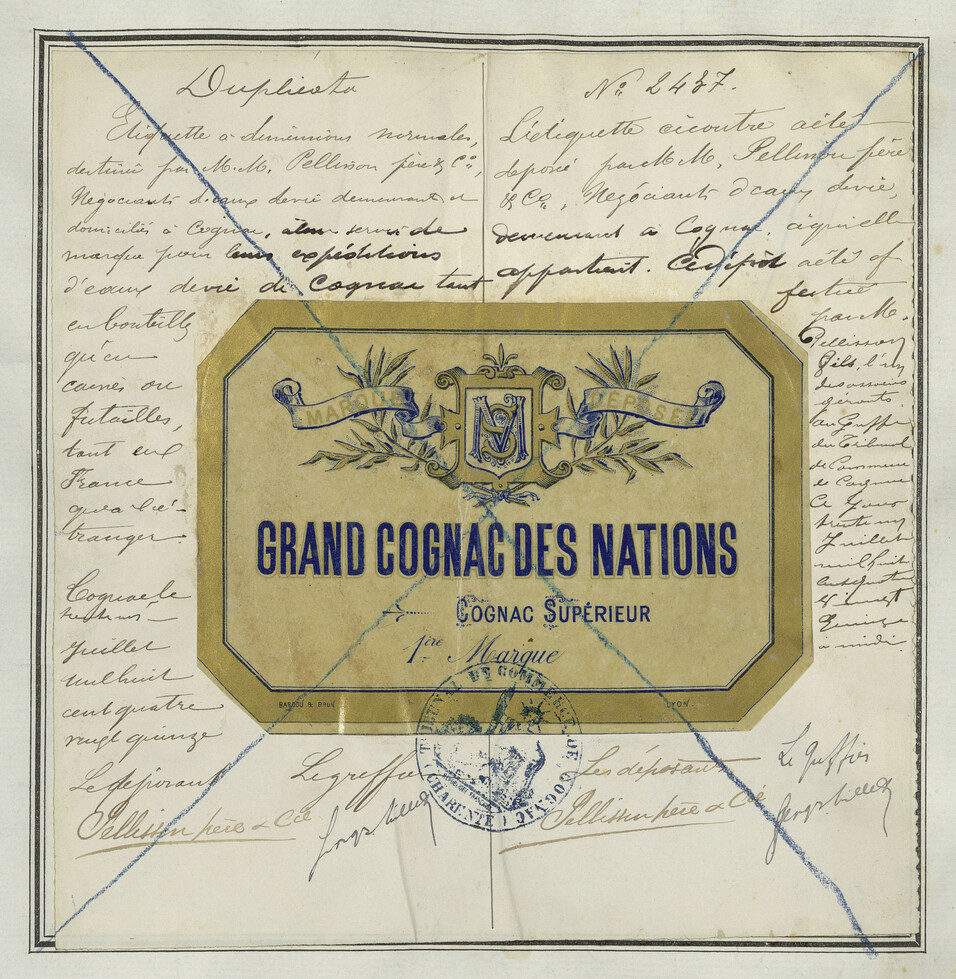 Duplicata
Etiquette à dimensions normales,
destinée par M.M. Pellisson père & Cie,
Négociants d'eaux de vie demeurant et
domiciliés à Cognac, à leur servir de
marque pour leurs expéditions
d'eaux de vie de Cognac tant
en bouteilles
qu'en
caisses ou
futailles,
tant en
France
qu'à l'é-
tranger.
Cognac, le
trente un
juillet
mil huit
cent quatre
vingt quinze
Le déposant
Pellisson père & Cie
Le greffier
No 2437.
L'étiquette ci contre a été
déposé par M.M. Pellisson père
& Cie, Négociants d'eaux de vie,
demeurant à Cognac, à qui elle
appartient. Ce dépôt a été ef
fectué
par M.
Pellisson
fils, l'un
des associés
gérants.
au Greffe
du Tribunal
de Commerce
de Cognac
Ce jour
trente un
Juillet
mil huit
cent quatre
vingt
Quinze
à midi.
Les déposants
Pellisson père & Cie
Le greffier
MARQUE DÉPOSÉE
GRAND COGNAC DES NATIONS
COGNAC SUPÉRIEUR
1ère Marque
LYON
TRIBUNAL DE COMMERCE DE COGNAC
(CHARENTE)